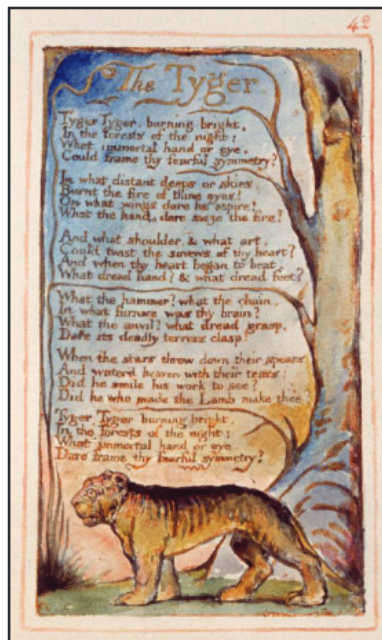 42
The Tyger
Tyger Tyger, burning bright,
In the forests of the night;
What immortal hand or eye,
Could frame thy fearful symmetry?
In what distant deeps or skies
Burnt the fire of thine eyes!
On what wings dare he aspire!
What the hand, dare sieze the fire?
And what shoulder, & what art,
Could twist the sinews of thy heart?
And when thy heart began to beat,
What dread hand? & what dread feet?
What the hammer? what the chain,
In what furnace was thy brain?
What the anvil? what dread grasp,
Dare its deadly terrors clasp?
When the stars threw down their spears
And water'd heaven with their tears:
Did he smile his work to see?
Did he who made the Lamb make thee?
Tyger Tyger burning bright,
In the forests of the night:
What immortal hand or eye,
Dare frame thy fearful symmetry?